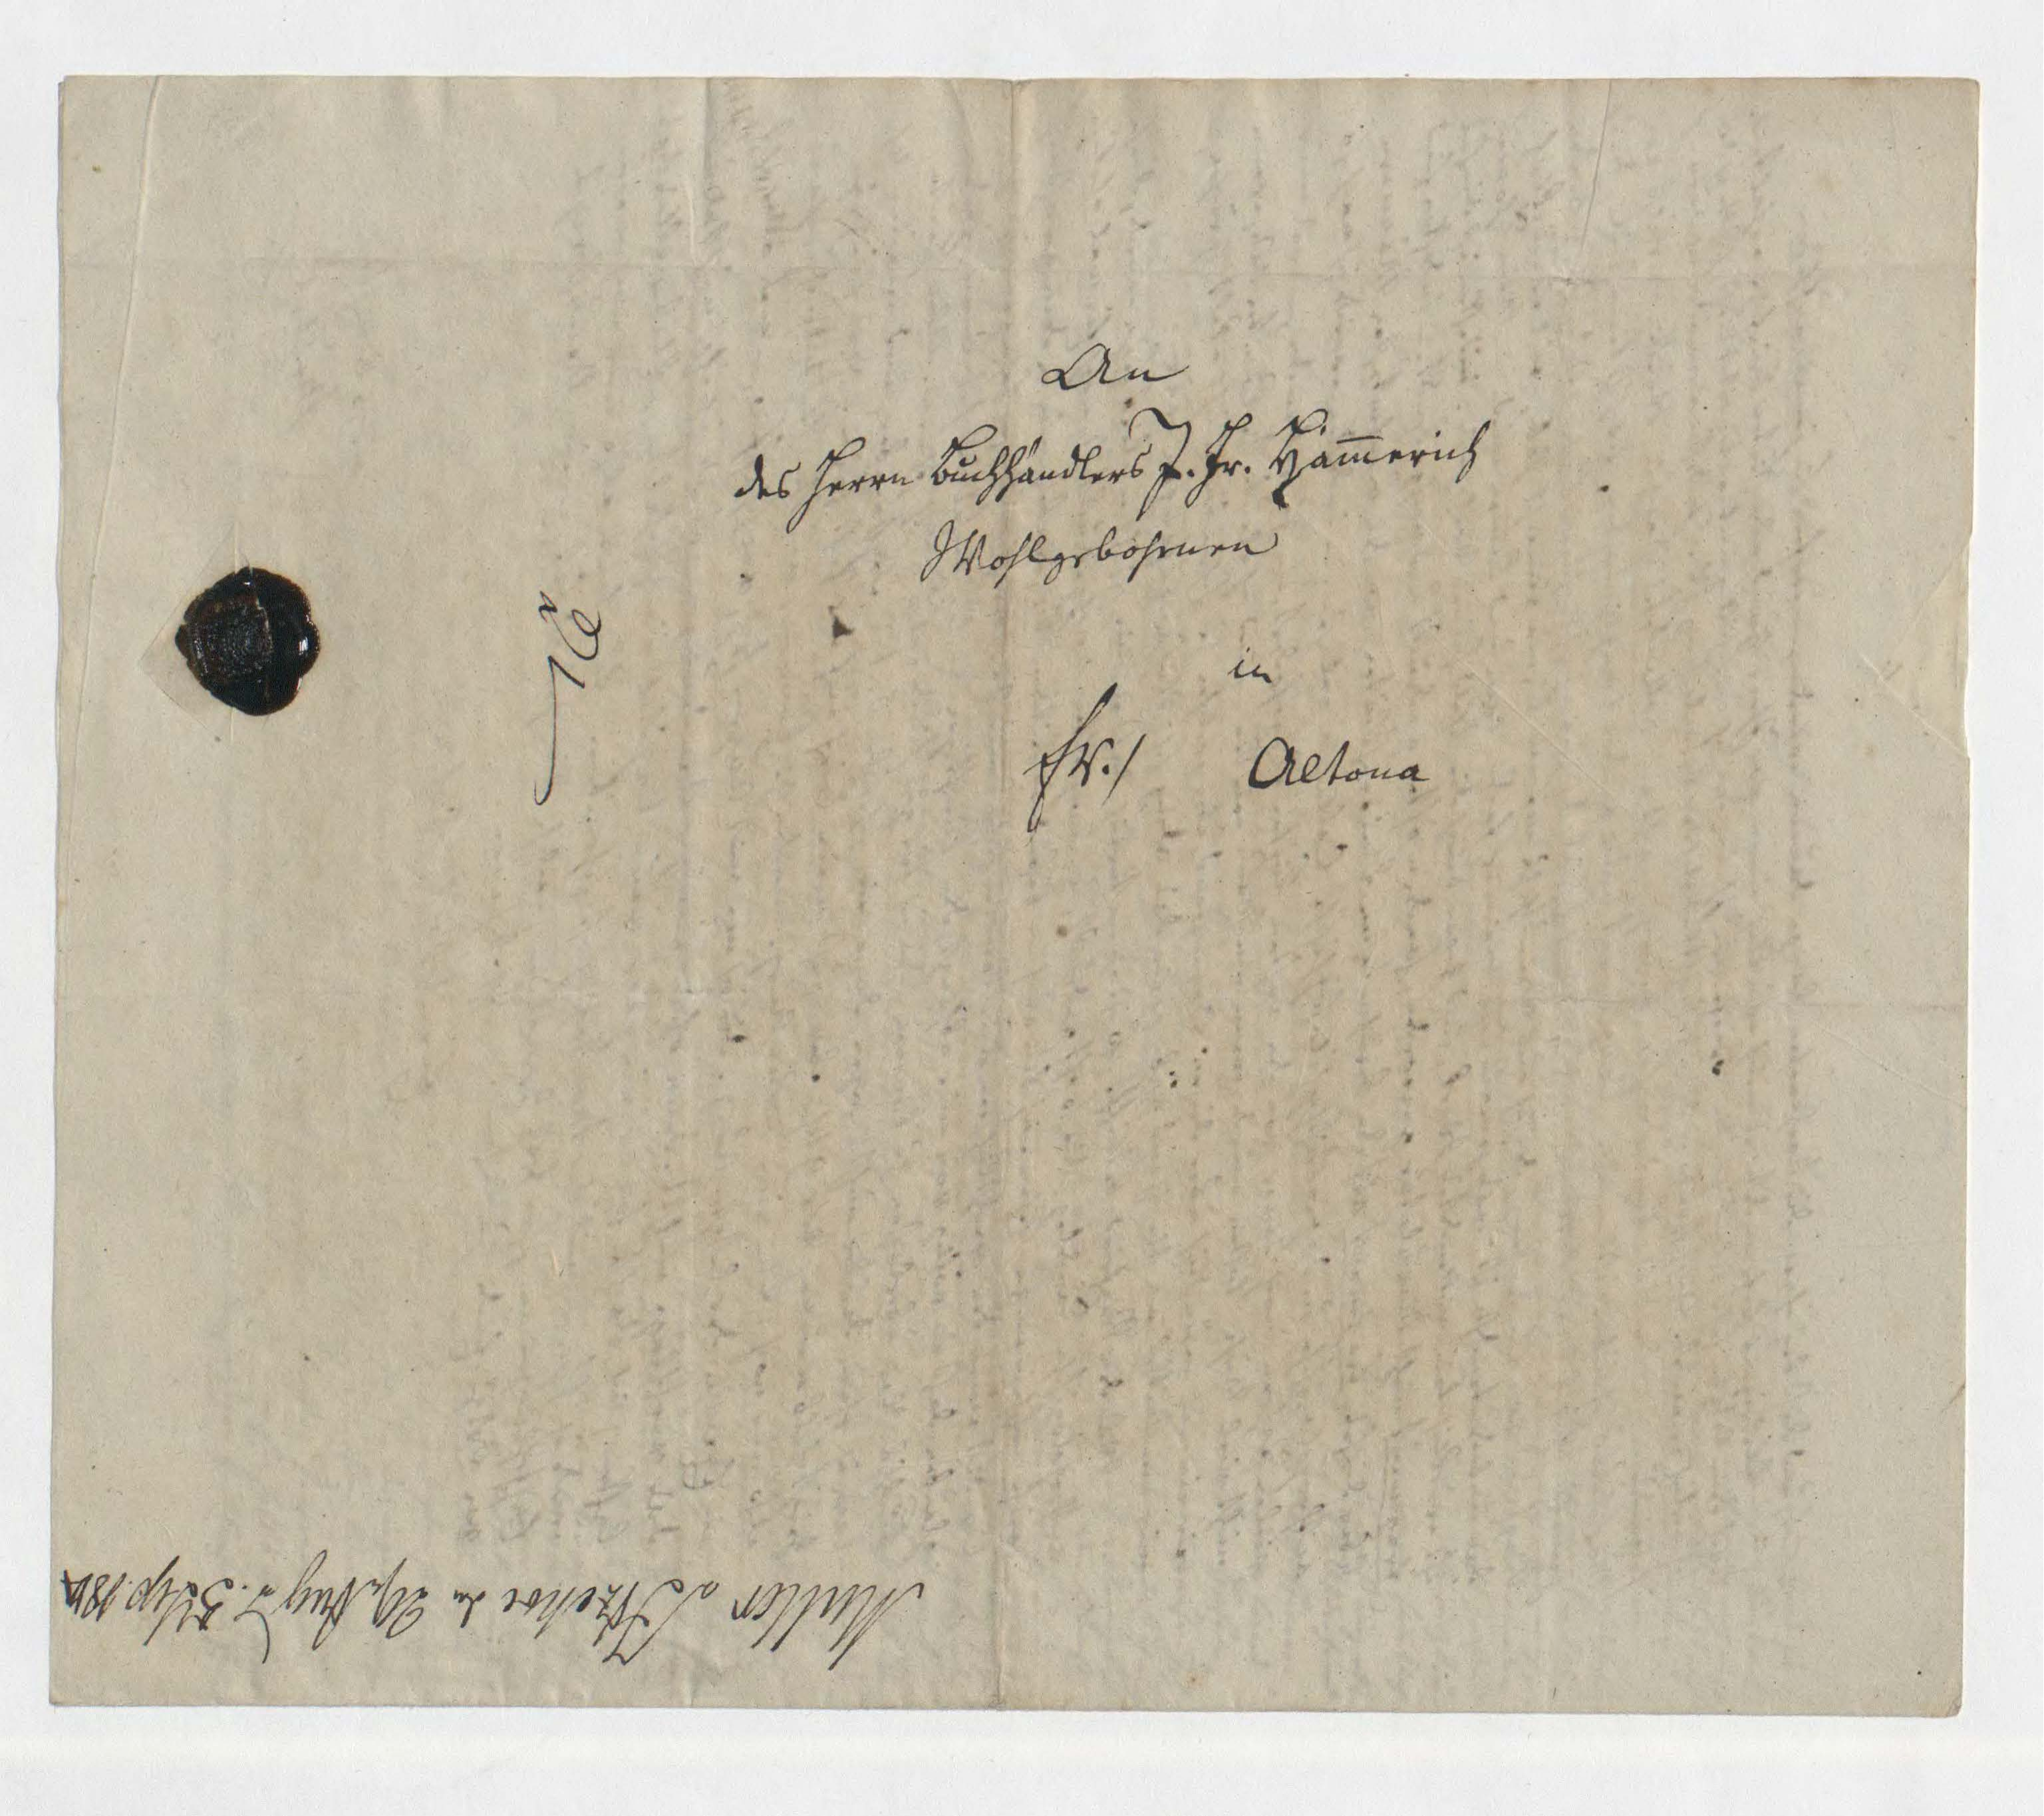 An
des Herrn Buchhändlers J. Fr. Ham̄erich
Wohlgebohrnen
in
fr./ Altona
Müller a Itzehoe den 29. Aug. 5 Sep. 181